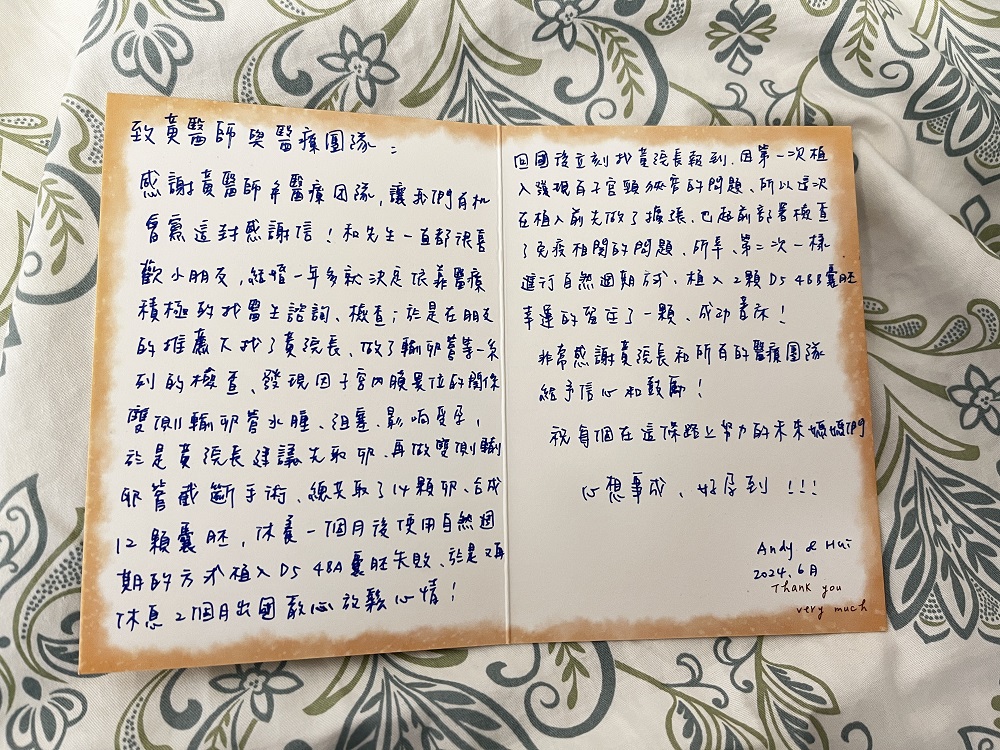 致黃醫師與醫療團隊：
感謝黃醫師和醫療团隊，讓我們有机
會寫這封感謝信！和先生一直都很喜
歡小朋友，結婚一年多就決定依靠醫療
積極的找醫生諮詢、檢查；於是在朋友
的推薦下找了黃院長、做了輸卵管等一系
列的檢查、發現因子宮內膜異位的關係
雙側輸卵管水腫、阻塞、影响受孕，
於是黃院長建議先取卵、再做雙側輸
卵管截斷手術、總共取了14顆卵、合成
12顆囊胚，休養一個月後使用自然週
期的方式植入D5 4BA囊胚失敗、於是又再
休息2個月出國散心放鬆心情！
回國後立刻找黃院長報到、因第一次植
入發現有子宮頸狹窄的問題、所以這次
在植入前先做了擴張、也超前部署檢查
了免疫相關的問題、所幸、第二次一樣
進行自然週期方式、植入2顆D5 4BB囊胚
幸運的留住了一顆、成功著床！
非常感謝黃院長和所有的醫療團隊
給予信心和鼓勵！
祝每個在這條路上努力的未來媽媽們
心想事成、好孕到 !!!
Andy & Hui
2024.6月
Thank you
very much